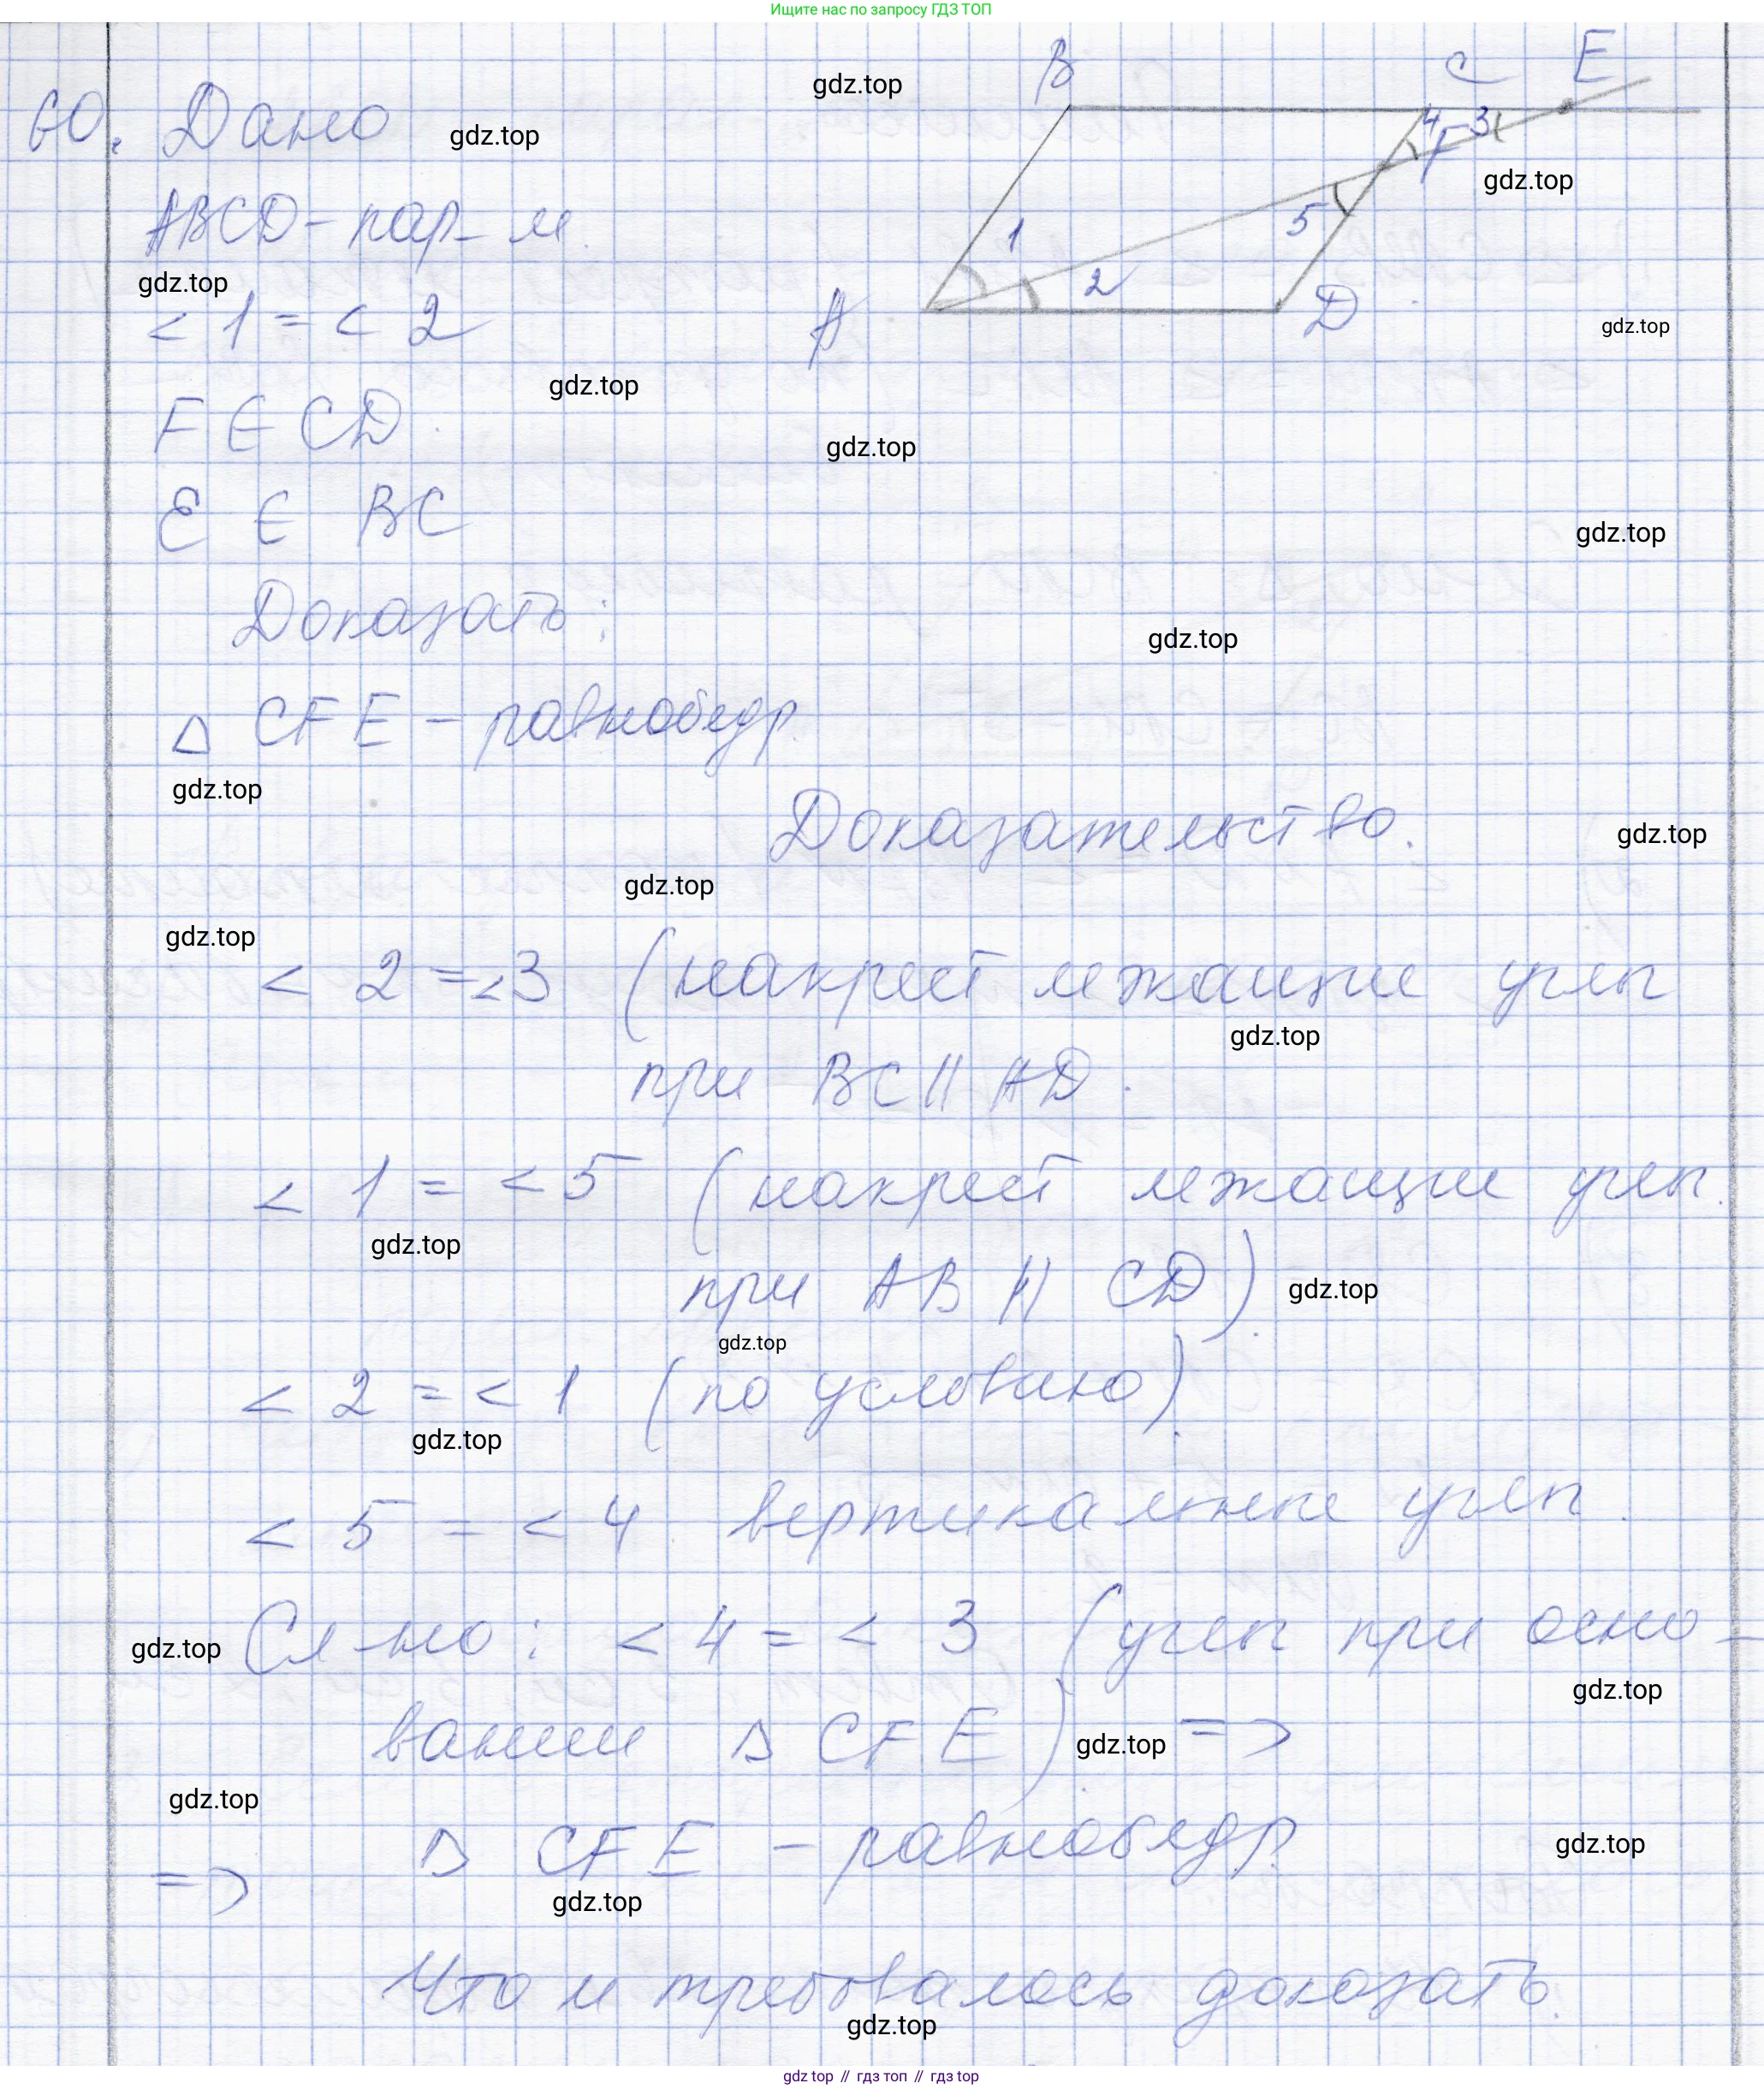 Ищите нас по запросу ГДЗ ТОП
B C E
60. Дано
gdz.top
gdz.top
4 F 3
gdz.top
ABCD - пар-м.
1 5
gdz.top
2
< 1 = < 2
A D
gdz.top
gdz.top
F ∈ CD.
gdz.top
E ∈ BC
gdz.top
Доказать:
gdz.top
Δ CFE - равнобедр.
gdz.top
Доказательство.
gdz.top
gdz.top
gdz.top
< 2 = < 3 (накрест лежащие углы
gdz.top
при BC || AD.
< 1 = < 5 (накрест лежащие углы.
gdz.top
при AB || CD).
gdz.top
gdz.top
< 2 = < 1 (по условию).
gdz.top
< 5 = < 4 вертикальные углы.
Сл-но: < 4 = < 3 (углы при осно-
gdz.top
gdz.top
вании Δ CFE). =>
gdz.top
gdz.top
=> Δ CFE - равнобедр.
gdz.top
gdz.top
Что и требовалось доказать.
gdz.top
gdz top // гдз топ // гдз top